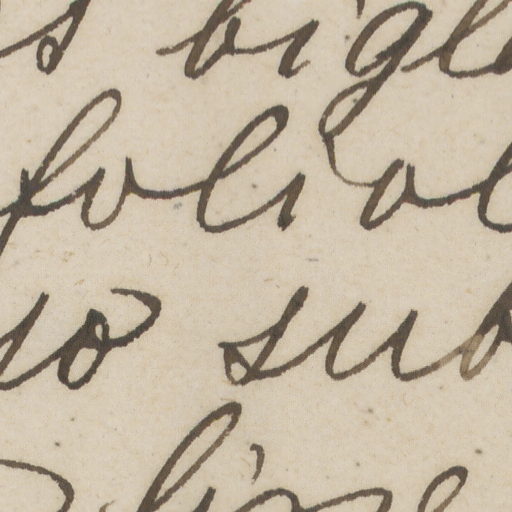 s bigl
foliol
so sub
line